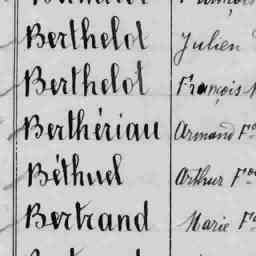 Berthelot Julien
Berthelot François
Berthériau Armand Fᵒ
Béthuel Arthur Fᵒ
Bertrand Marie Fᵒ